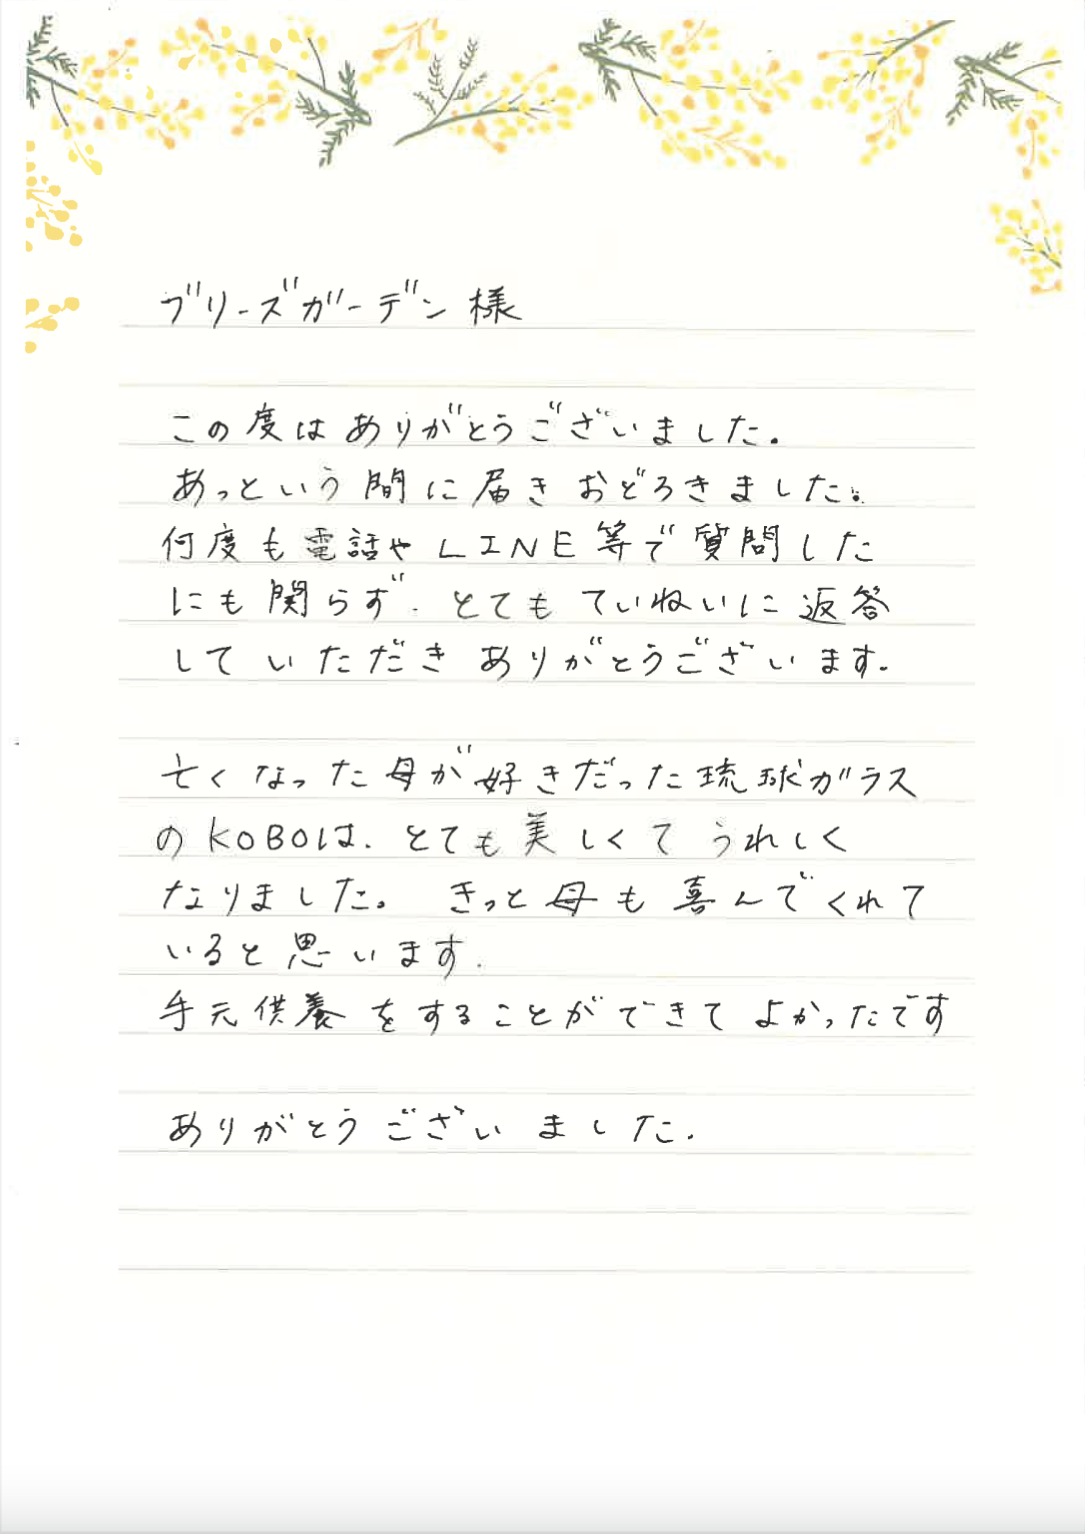 ブリーズガーデン様
この度はありがとうございました。
あっという間に届きおどろきました。
何度も電話やLINE等で質問した
にも関らず、とてもていねいに返答
していただきありがとうございます。
亡くなった母が好きだった琉球ガラス
のKOBOは、とても美しくてうれしく
なりました。 きっと母も喜んでくれて
いると思います。
手元供養をすることができてよかったです
ありがとうございました。